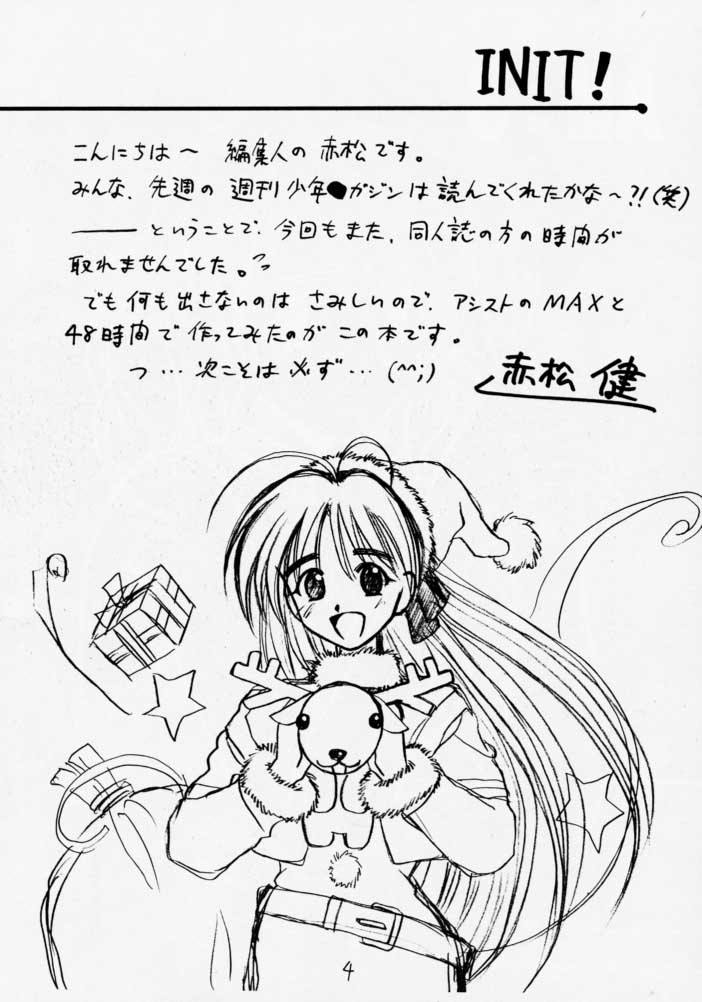 INIT!
こんにちは〜 編集人の 赤松です。
みんな、先週の 週刊少年●ガジンは 読んでくれたかな〜?!(笑)
―― ということで、今回もまた、同人誌の方の時間が
取れませんでした。
でも何も出さないのは さみしいので、アシストの MAXと
48時間で 作ってみたのが この本です。
つ…次こそは 必ず…(^^;)
赤松 健
4